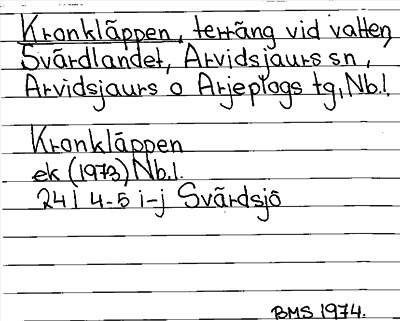 Kronkläppen, terräng vid vatten,
Svärdlandet, Arvidsjaurs sn,
Arvidsjaurs o Arjeplogs tg, Nb.l.
Kronkläppen
ek (1973) Nb.l.
24I 4-5 i-j Svärdsjö
BMS 1974.